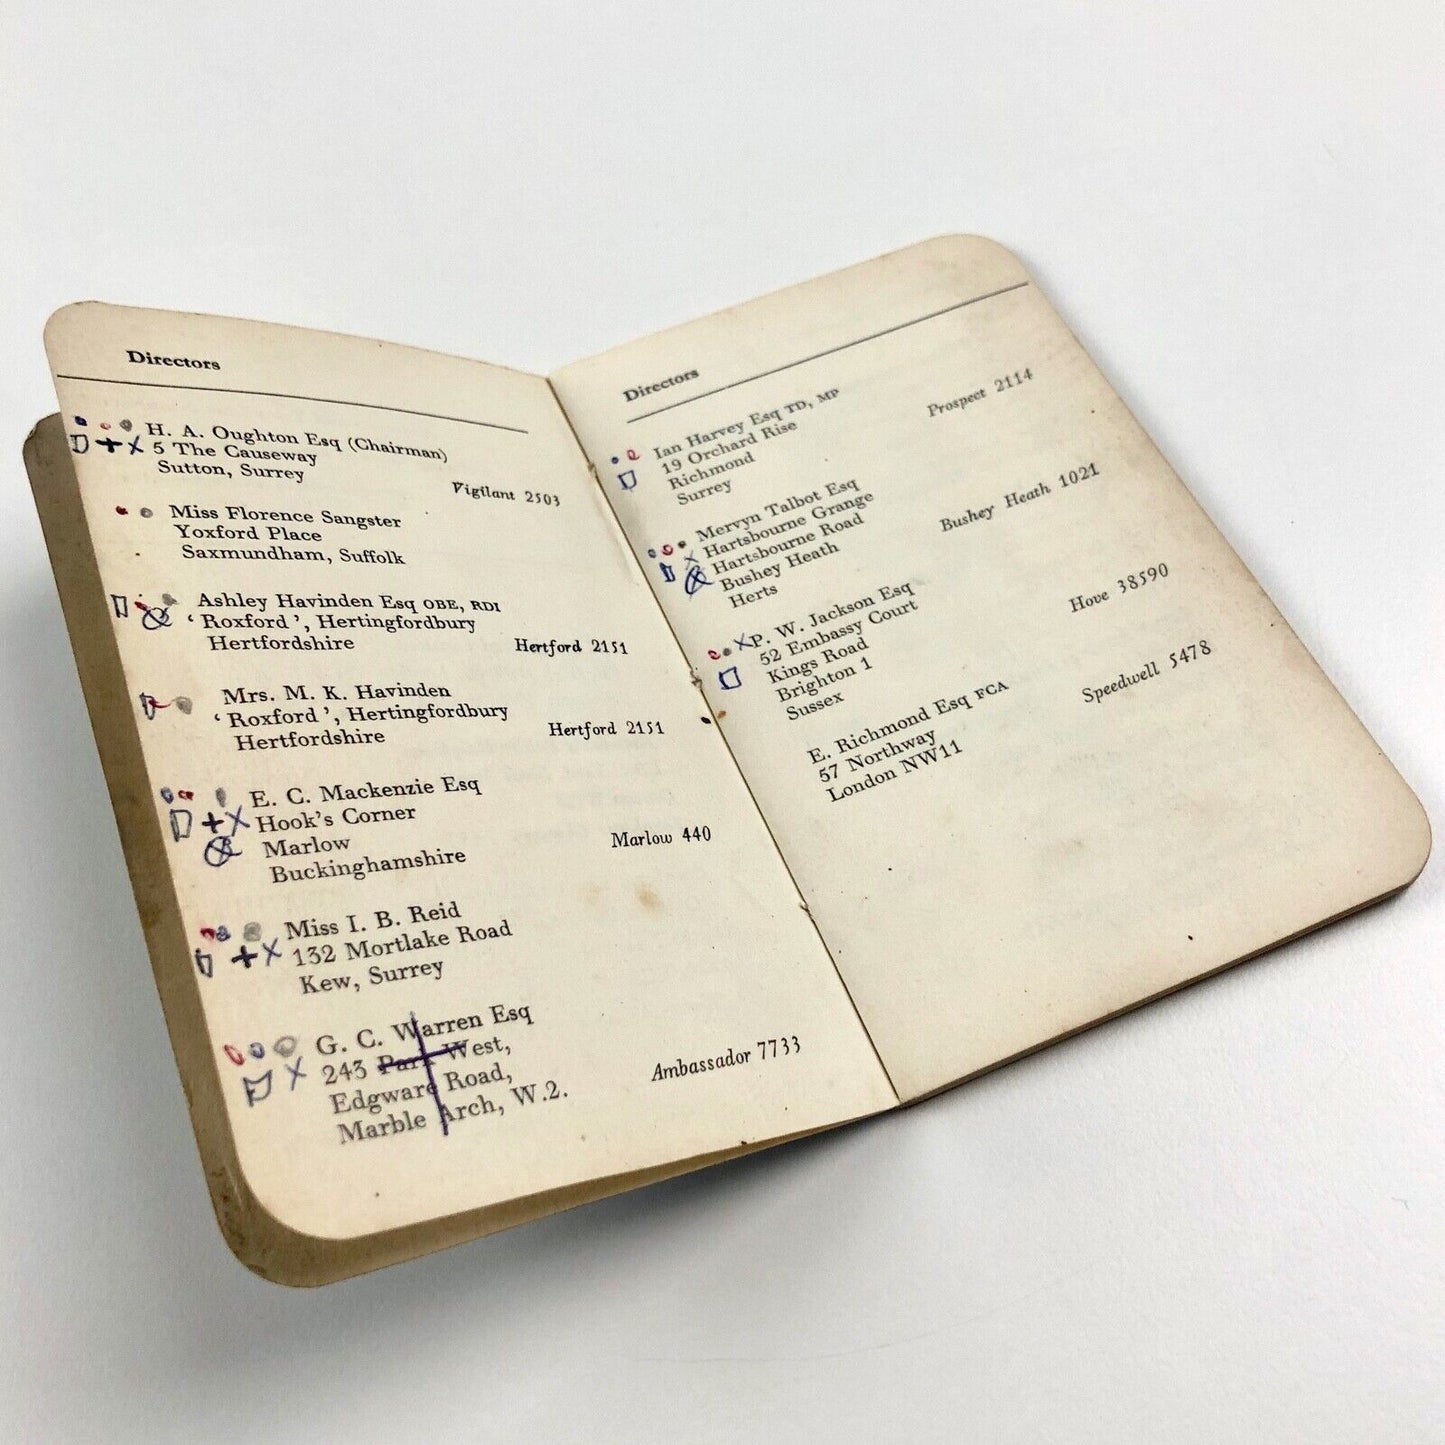 Directors
H. A. Oughton Esq (Chairman)
5 The Causeway
Sutton, Surrey
Vigilant 2503
Miss Florence Sangster
Yoxford Place
Saxmundham, Suffolk
Ashley Havinden Esq OBE, RDI
‘ Roxford ’, Hertingfordbury
Hertfordshire
Hertford 2151
Mrs. M. K. Havinden
‘ Roxford ’, Hertingfordbury
Hertfordshire
Hertford 2151
E. C. Mackenzie Esq
Hook's Corner
Marlow
Buckinghamshire
Marlow 440
Miss I. B. Reid
132 Mortlake Road
Kew, Surrey
G. C. Warren Esq
243 Park West,
Edgware Road,
Marble Arch, W.2.
Ambassador 7733
Directors
Ian Harvey Esq TD, MP
19 Orchard Rise
Richmond
Surrey
Prospect 2114
Mervyn Talbot Esq
Hartsbourne Grange
Hartsbourne Road
Bushey Heath
Herts
Bushey Heath 1021
P. W. Jackson Esq
52 Embassy Court
Kings Road
Brighton 1
Sussex
Hove 38590
E. Richmond Esq FCA
57 Northway
London NW11
Speedwell 5478